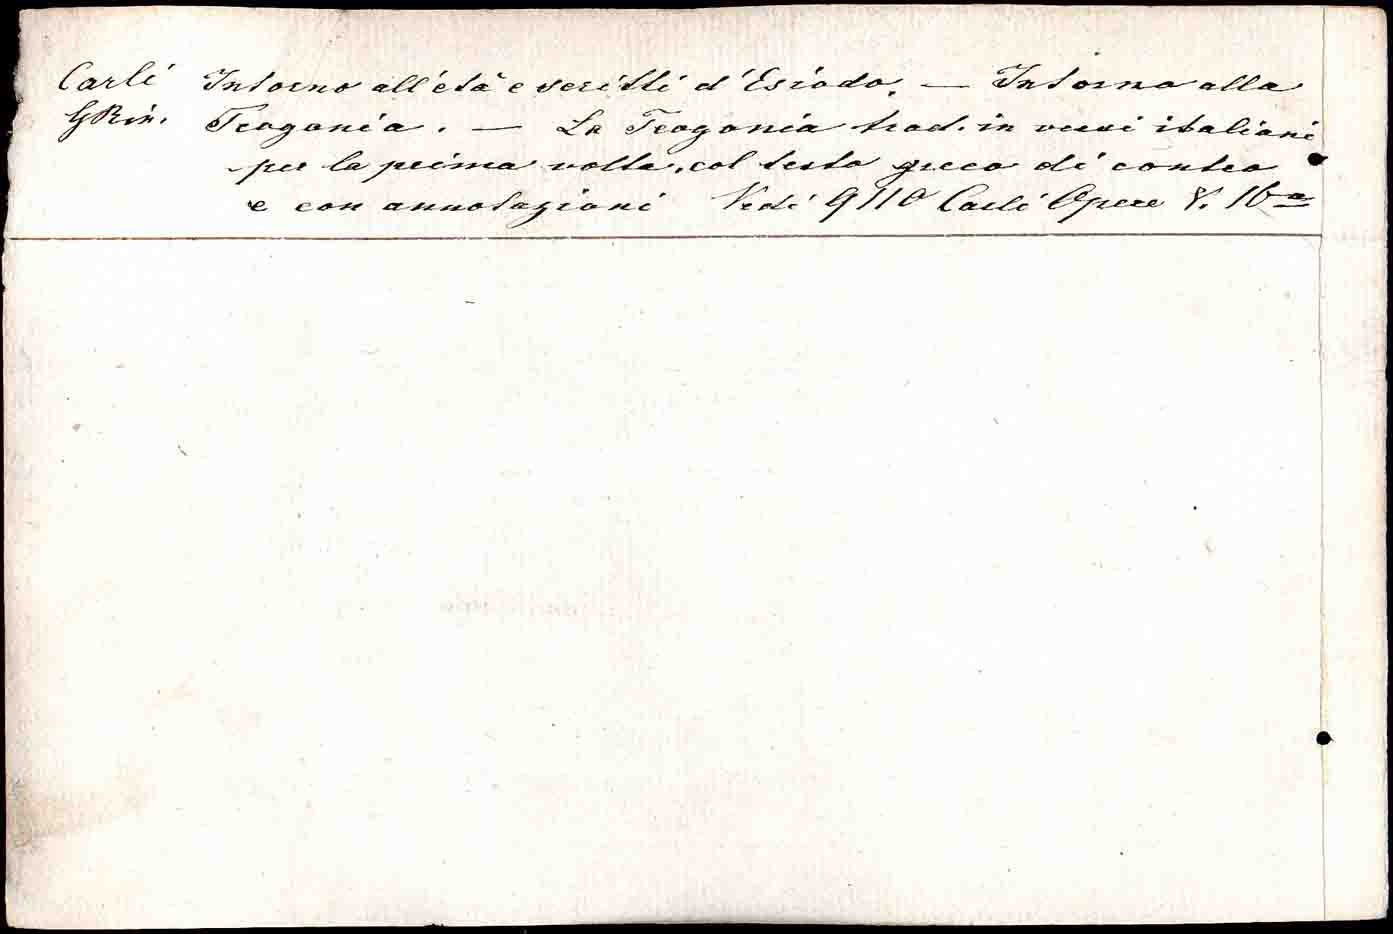 Carli Intorno all'età e scritti d'Esiodo. — Intorno alla
G Rin. Teogonia. — La Teogonia trad. in versi italiani
per la prima volta, col testo greco di contro
e con annotazioni Vedi 9110 Carli Opere V. 16